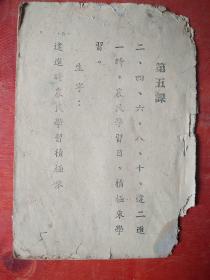 第五課
二、四、六、八、十、逢二進
一時。農民學習日、積極來學
習。
生字：
逢進時農民學習積極來
5